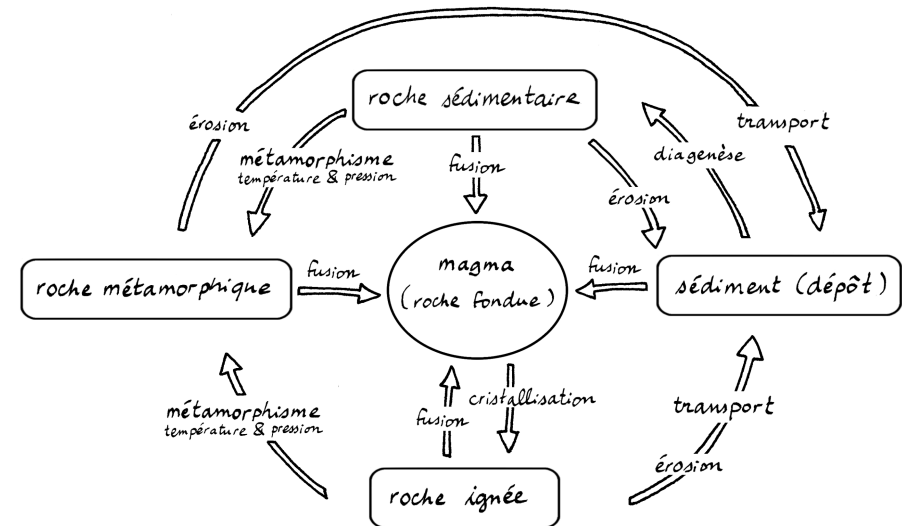 roche sédimentaire
érosion
transport
métamorphisme
température & pression
fusion
diagenèse
érosion
roche métamorphique
fusion
magma
(roche fondue)
fusion
sédiment (dépôt)
métamorphisme
température & pression
fusion
cristallisation
transport
érosion
roche ignée